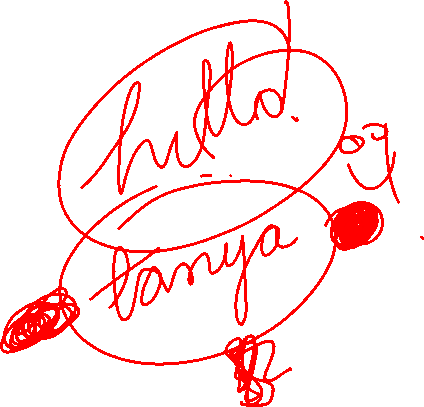 hello!
tanya